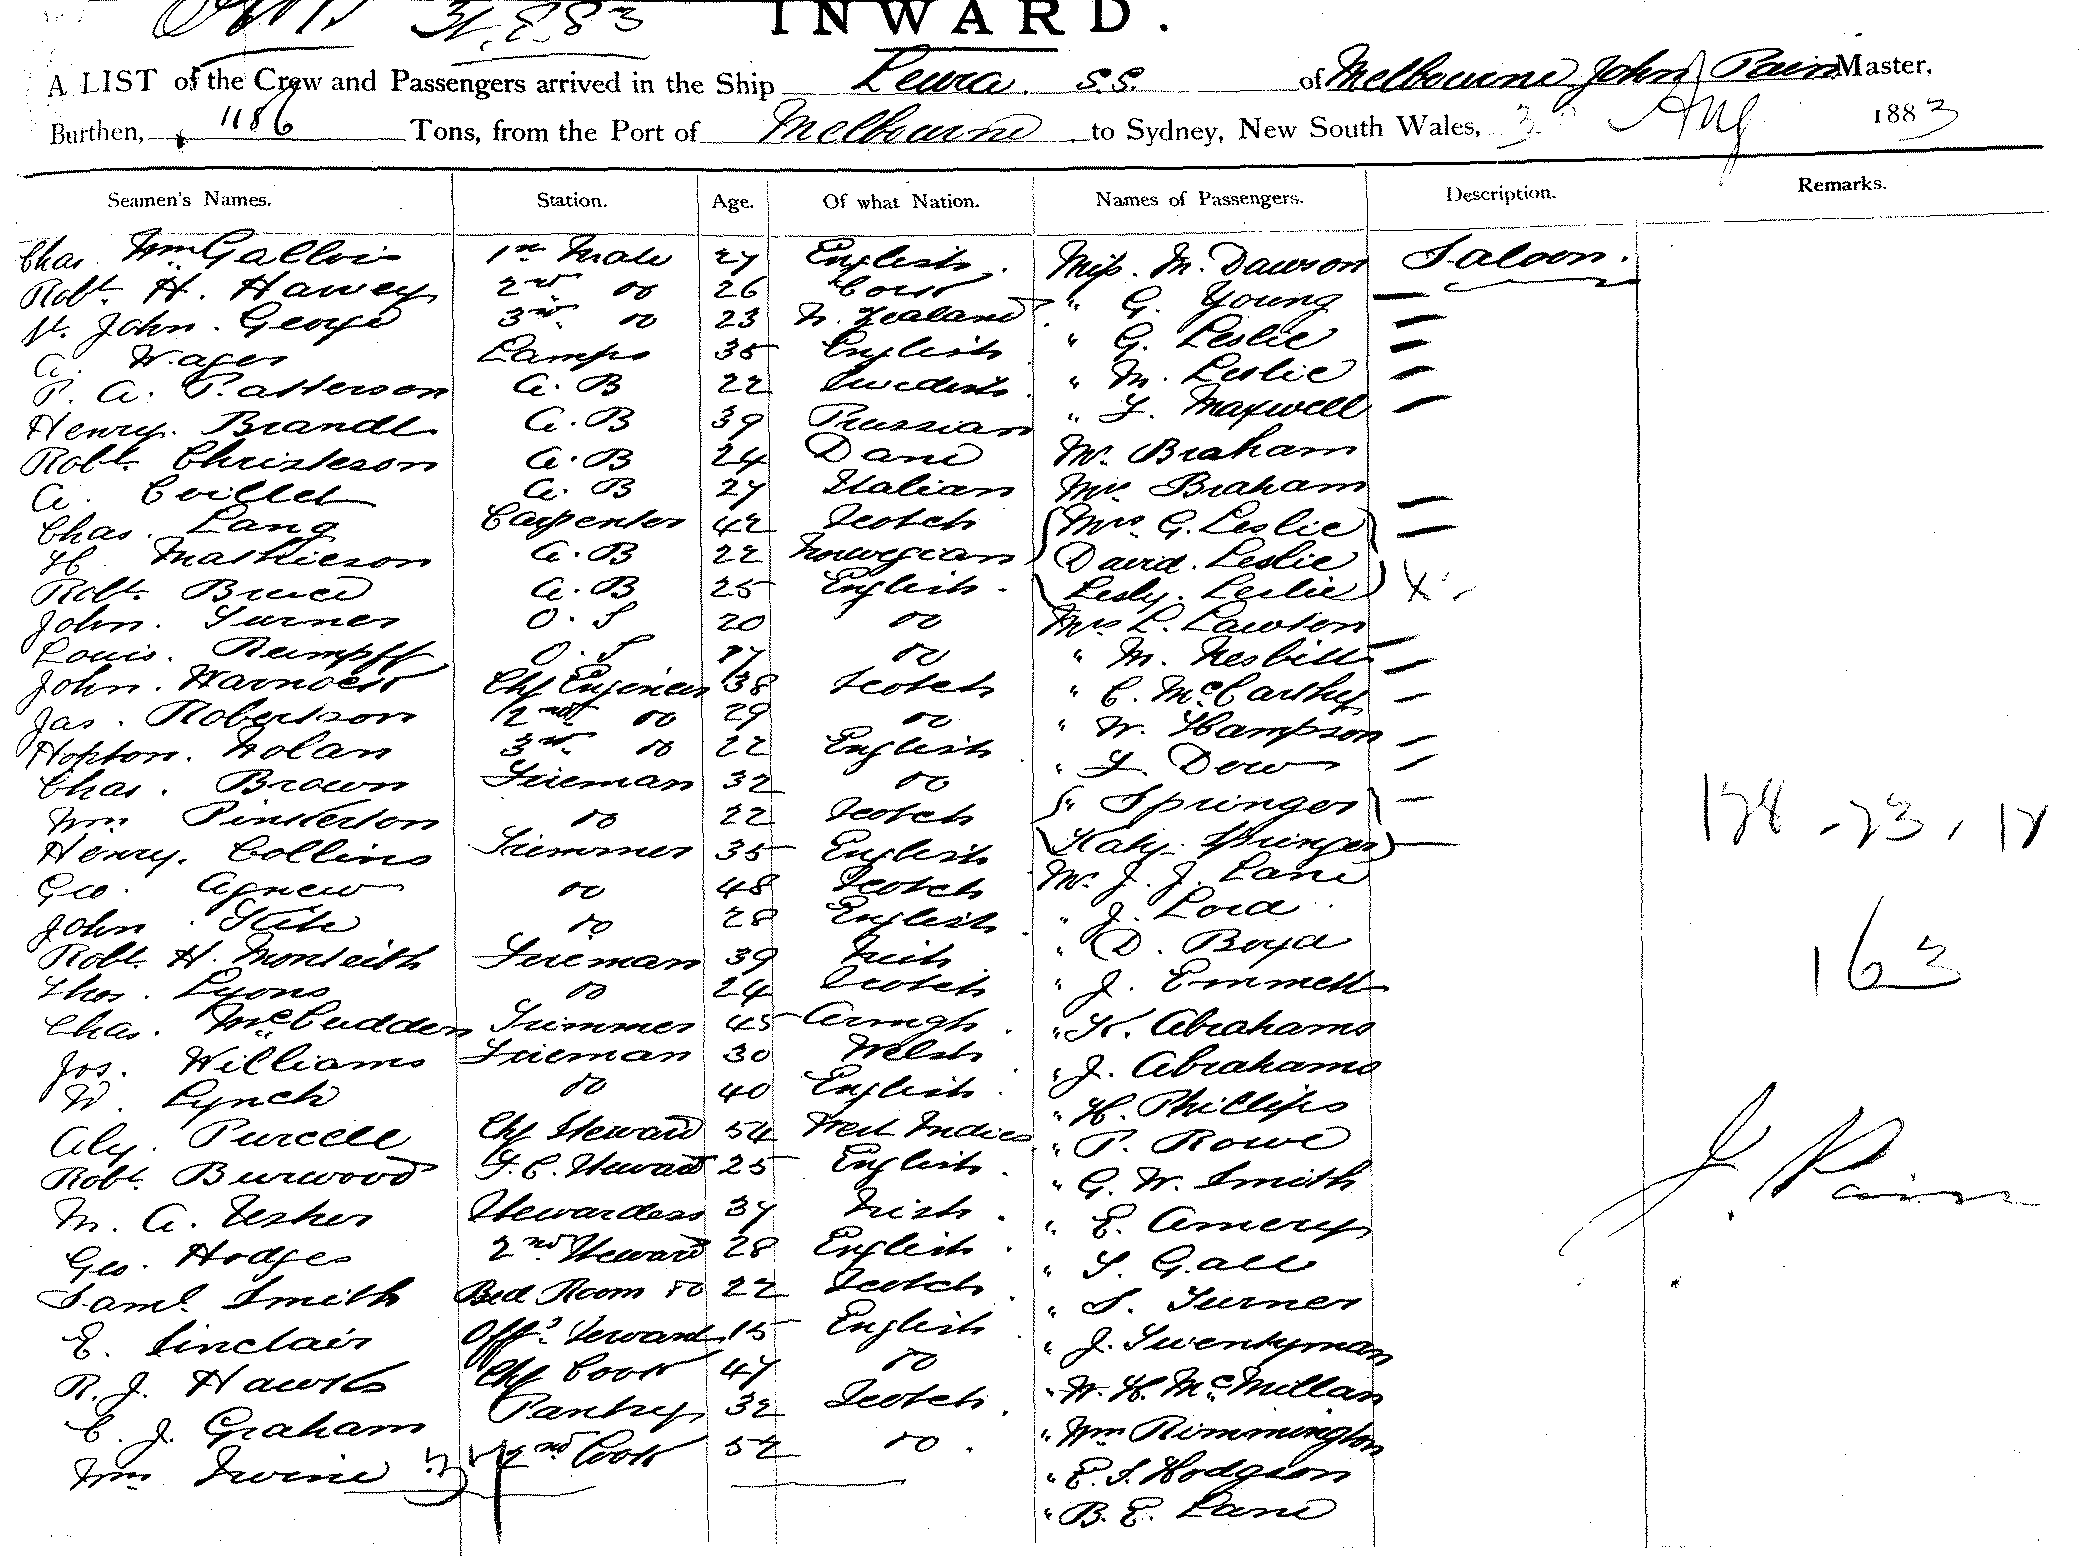 31.8.83
INWARD.
A LIST of the Crew and Passengers arrived in the Ship Leura S.S. of Melbourne John Pain Master,
Burthen, 1186 Tons, from the Port of Melbourne to Sydney, New South Wales, Aug 1883
Seamen's Names. Station. Age. Of what Nation. Names of Passengers. Description. Remarks.
Chas Wm Gallois 1st Mate 27 English. Miss. M. Dawson Saloon.
Robt. H. Harvey 2nd do 26 " G. Young
St. John. George 3rd. do 23 N. Zealand " G. Leslie
A. Wager Lamps 35 English " M. Leslie
P. A. Patterson A. B 22 Swedish " L. Maxwell
Henry. Brandt A. B 39 Prussian Mr. Braham
Robt. Christeson A. B 24 Dane Mrs Braham
A. A. B 27 Italian Mrs G. Leslie
Chas. Lang Carpenter 42 Scotch David. Leslie
H. Mathieson A. B 22 Norwegian Lesly. Leslie X
Robt. Bruce A. B 25 English. Mrs L. Lawton
John. Turner O. S 20 do " M. Nesbitt
Louis. Rumpff O. S 17 do " C. McCarthy
John. Warnock Chf Engineer 38 Scotch " W. Hampson
Jas. Robertson 2nd do 29 do " L. Dow
Hopton. Nolan 3rd. do 22 English " Springer
Chas. Brown Fireman 32 do Katy. Springer
Wm Pinkerton do 22 Scotch Mr. J. J. Lane
Henry. Collins Trimmer 35 English " J. Lord
Geo. Agnew do 48 Scotch " D. Boyd
John do 28 English " J. Emmett
Robt. H. Monteith Fireman 39 Irish " K. Abrahams
Thos. Lyons do 24 Scotch " J. Abrahams
Chas. McCudden Trimmer 45 " H. Phillips
Jos. Williams Fireman 30 Welsh " P. Rowe
W. Lynch do 40 English. " G. W. Smith
Aly. Purcell Chf Steward 54 West Indies " E. Amery
Robt. Burwood F. C. Steward 25 English. " S. Gall
M. A. Usher Stewardess 37 Irish. " S. Turner
Geo. Hodges 2nd Steward 28 English. " J. Twentyman
Saml. Smith Bed Room do 22 Scotch. " W. H. McMillan
E. Sinclair Offs. Servant 15 English " Wm Rimmington
R. J. Hawks Chf Cook 47 do " E. S. Hodgson
C. J. Graham Pantry 32 Scotch. " B. E. Lane
Wm Irvine 2nd Cook 52 do.
163
J. Pain